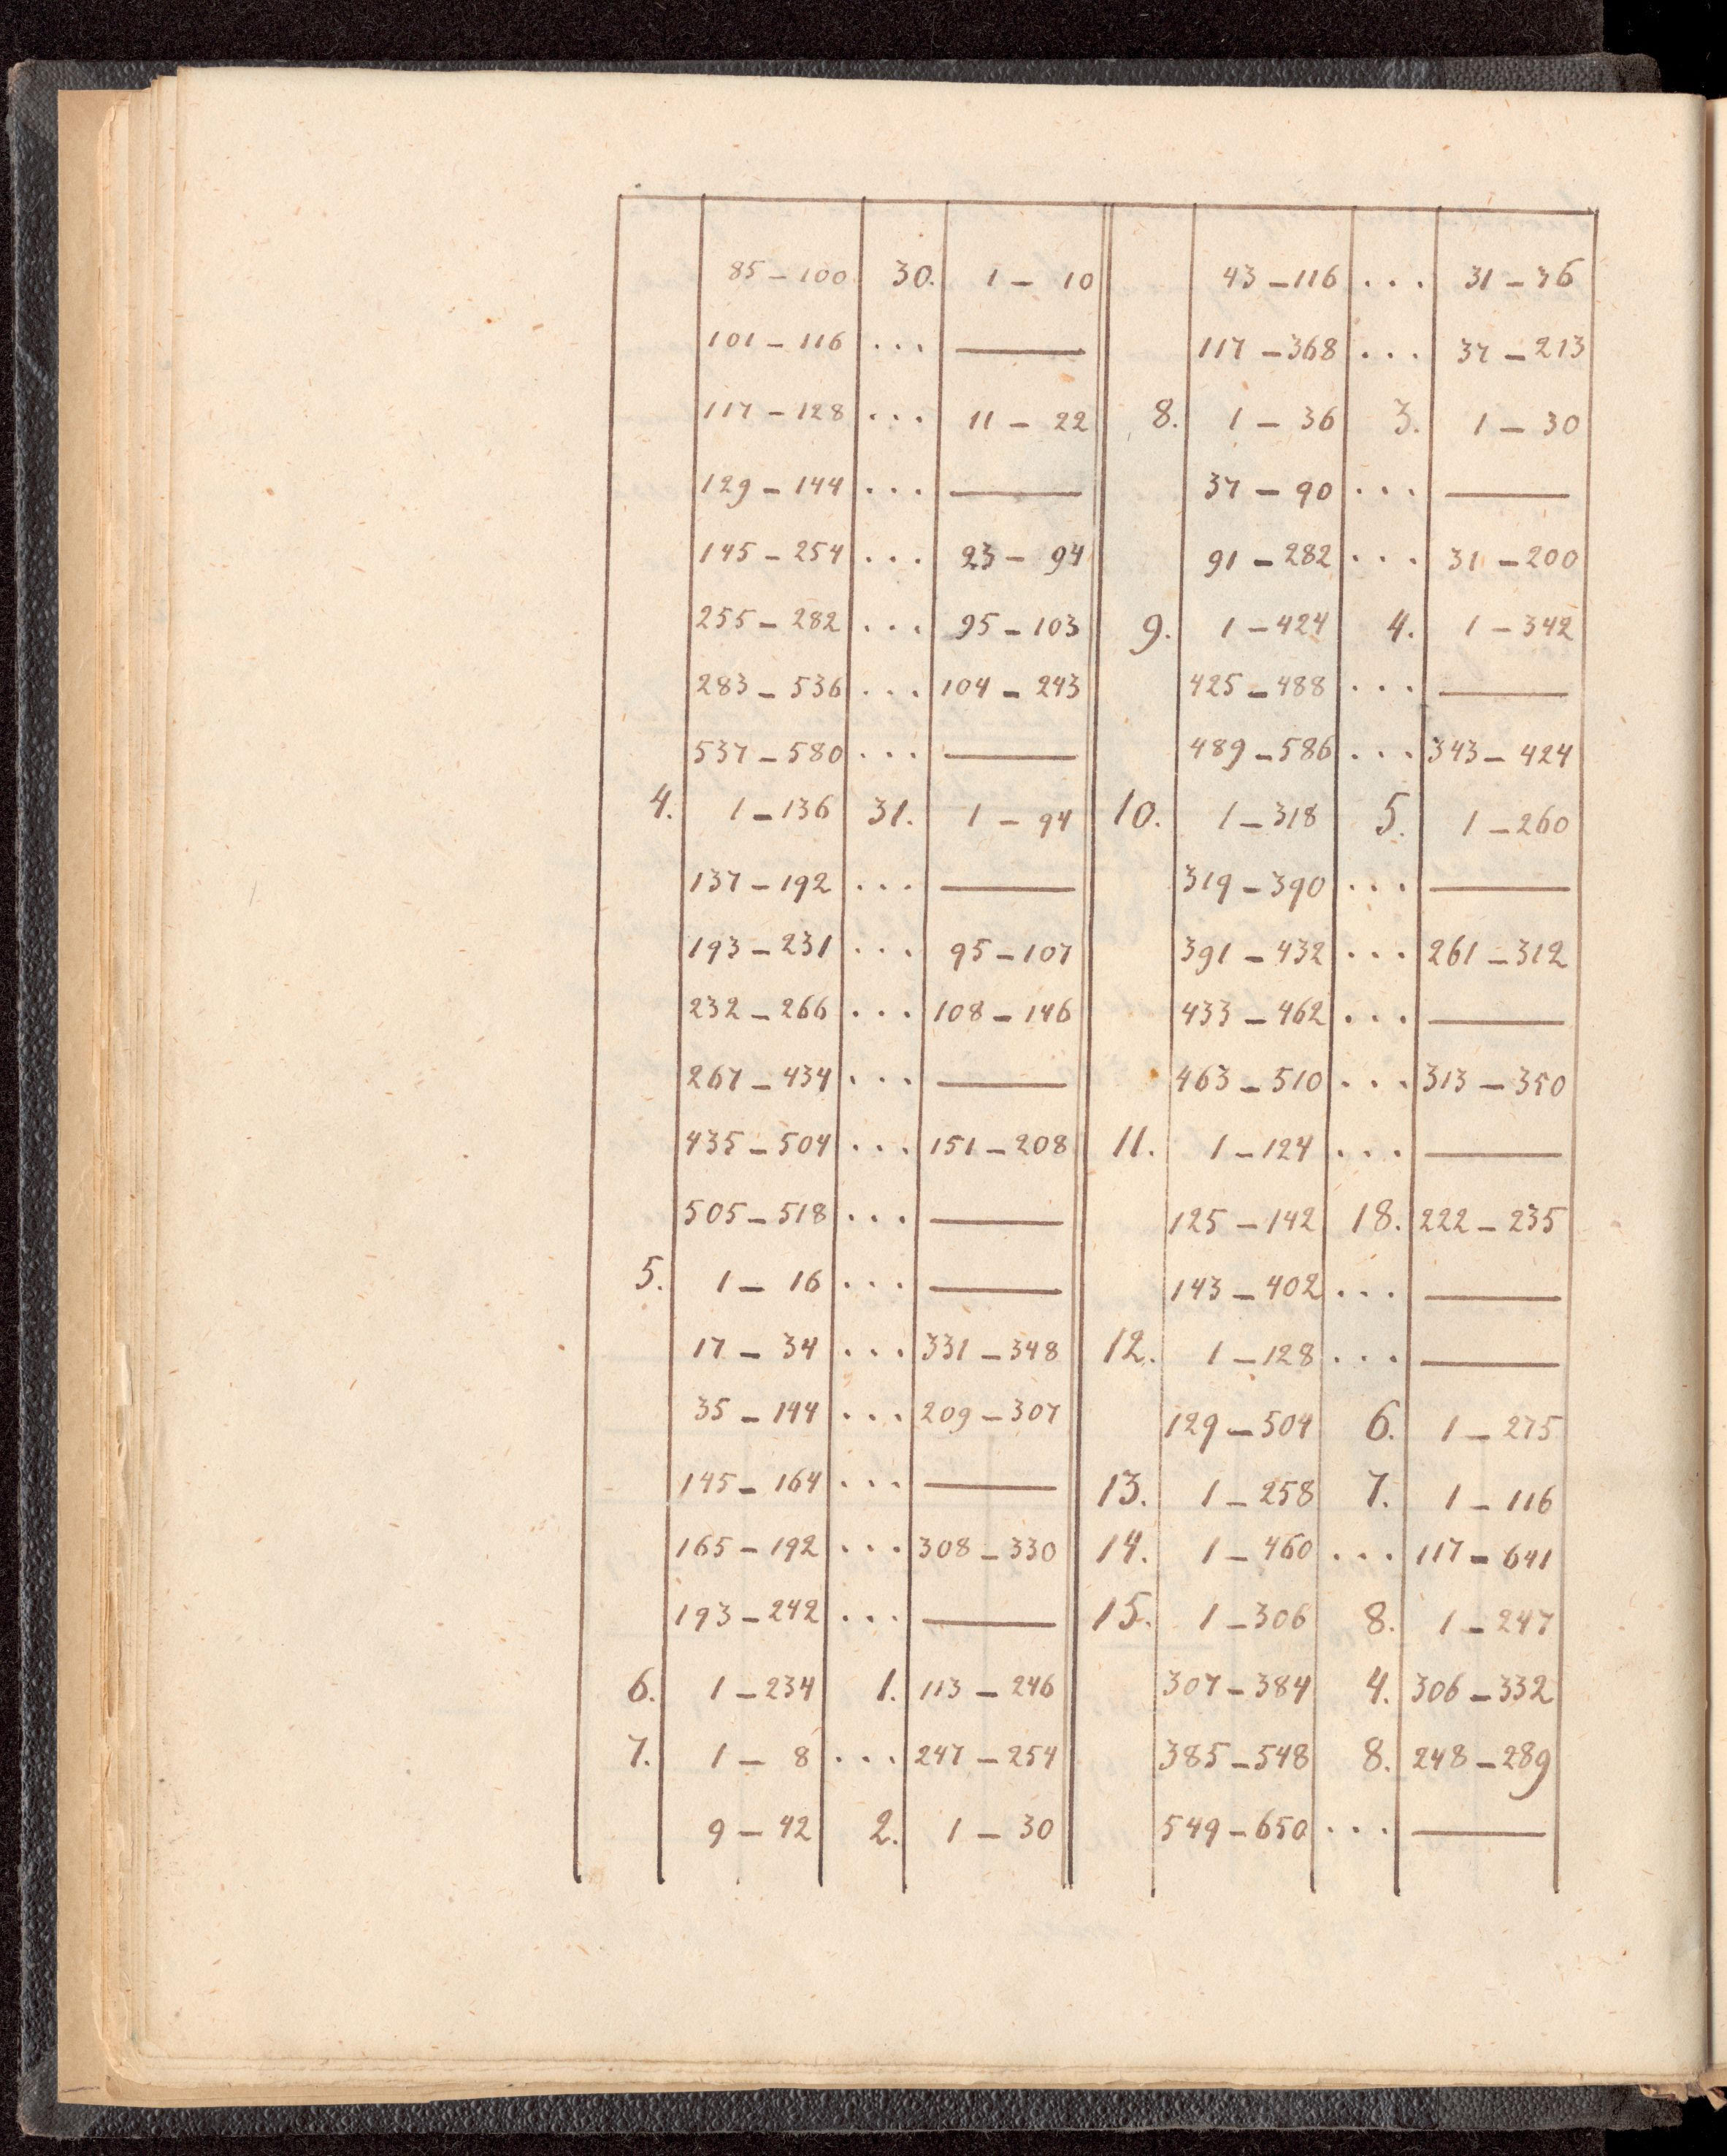 85 – 100 30. 1 – 10 43 – 116 ... 31 – 36
101 – 116 ... ——— 117 – 368 ... 37 – 213
117 – 128 ... 11 – 22 8. 1 – 36 3. 1 – 30
129 – 144 ... ——— 37 – 90 ... ———
145 – 254 ... 23 – 94 91 – 282 ... 31 – 200
255 – 282 ... 95 – 103 9. 1 – 424 4. 1 – 342
283 – 536 ... 104 – 243 425 – 488 ... ———
537 – 580 ... ——— 489 – 586 ... 343 – 424
4. 1 – 136 31. 1 – 94 10. 1 – 318 5. 1 – 260
137 – 192 ... ——— 319 – 390 ... ———
193 – 231 ... 95 – 107 391 – 432 ... 261 – 312
232 – 266 ... 108 – 146 433 – 462 ... ———
267 – 434 ... ——— 463 – 510 ... 313 – 350
435 – 504 ... 151 – 208 11. 1 – 124 ... ———
505 – 518 ... ——— 125 – 142 18. 222 – 235
5. 1 – 16 ... ——— 143 – 402 ... ———
17 – 34 ... 331 – 348 12. 1 – 128 ... ———
35 – 144 ... 209 – 307 129 – 504 6. 1 – 275
145 – 164 ... ——— 13. 1 – 258 7. 1 – 116
165 – 192 ... 308 – 330 14. 1 – 460 ... 117 – 641
193 – 242 ... ——— 15. 1 – 306 8. 1 – 247
6. 1 – 234 1. 113 – 246 307 – 384 4. 306 – 332
7. 1 – 8 ... 247 – 254 385 – 548 8. 248 – 289
9 – 42 2. 1 – 30 549 – 650 ... ———